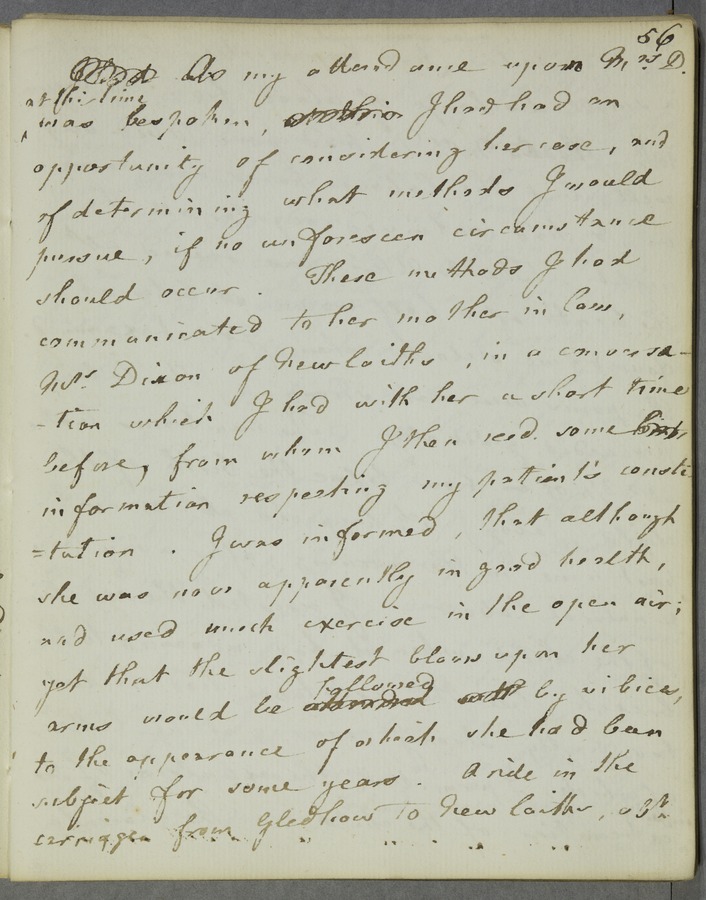 56
As my attendance upon Mrs D.
at this time
was bespoken, I had had an
opportunity of considering her case, and
of determining what methods I would
pursue, if no unforeseen circumstance
should occur. These methods I had
communicated to her mother in law,
Mrs. Dixon of Newlaiths, in a conversa-
-tion which I had with her a short time
before, from whom I then recd. some
information respecting my patient's consti-
=tution. I was informed, that although
she was now apparently in good health,
and used much exercise in the open air;
yet that the slightest blows upon her
followed
arms would be by vibices,
to the appearance of which she had been
subject for some years. A ride in the
carriage from Gledhow to Newlaiths,